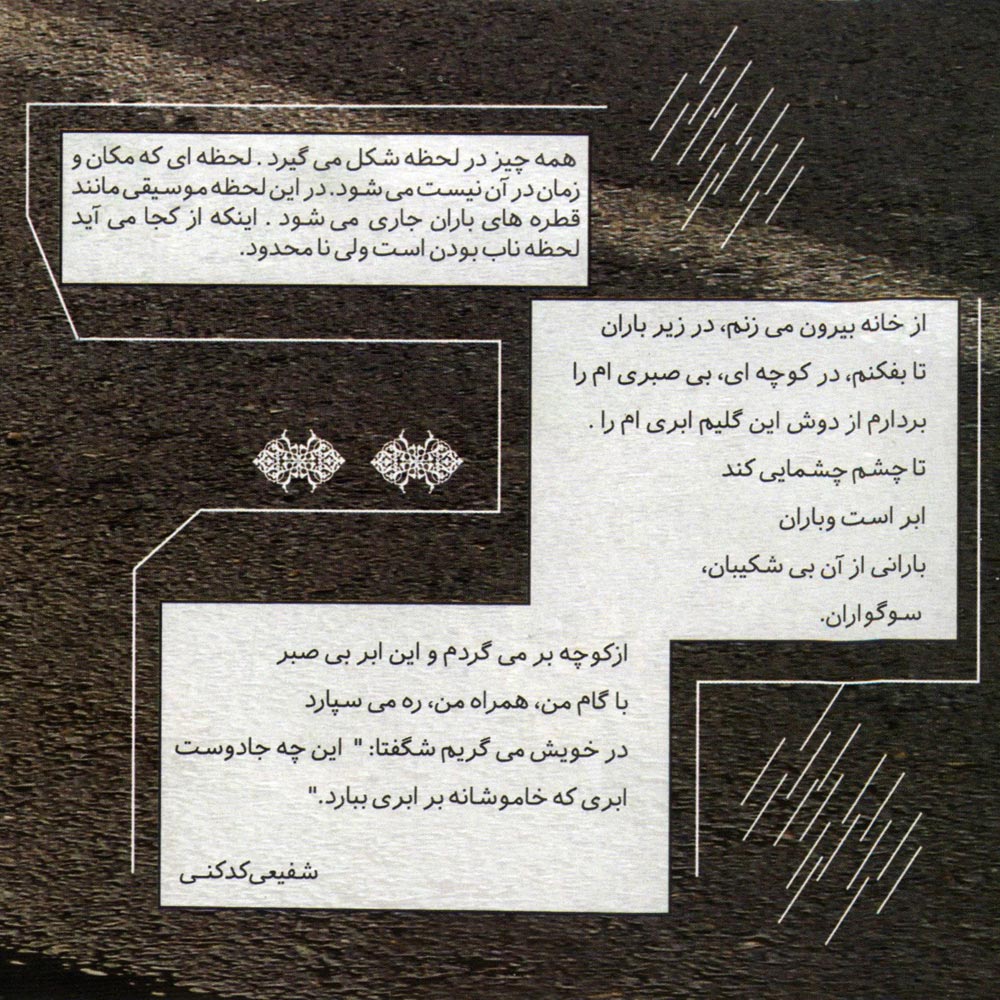 همه چیز در لحظه شکل می گیرد . لحظه ای که مکان و
زمان در آن نیست می شود. در این لحظه موسیقی مانند
قطره های باران جاری می شود . اینکه از کجا می آید
لحظه ناب بودن است ولی نا محدود.
از خانه بیرون می زنم، در زیر باران
تا بفکنم، در کوچه ای، بی صبری ام را
بردارم از دوش این گلیم ابری ام را .
تا چشم چشمایی کند
ابر است وباران
بارانی از آن بی شکیبان،
سوگواران.
ازکوچه بر می گردم و این ابر بی صبر
با گام من، همراه من، ره می سپارد
در خویش می گریم شگفتا: " این چه جادوست
ابری که خاموشانه بر ابری ببارد."
شفیعی‌کدکنی